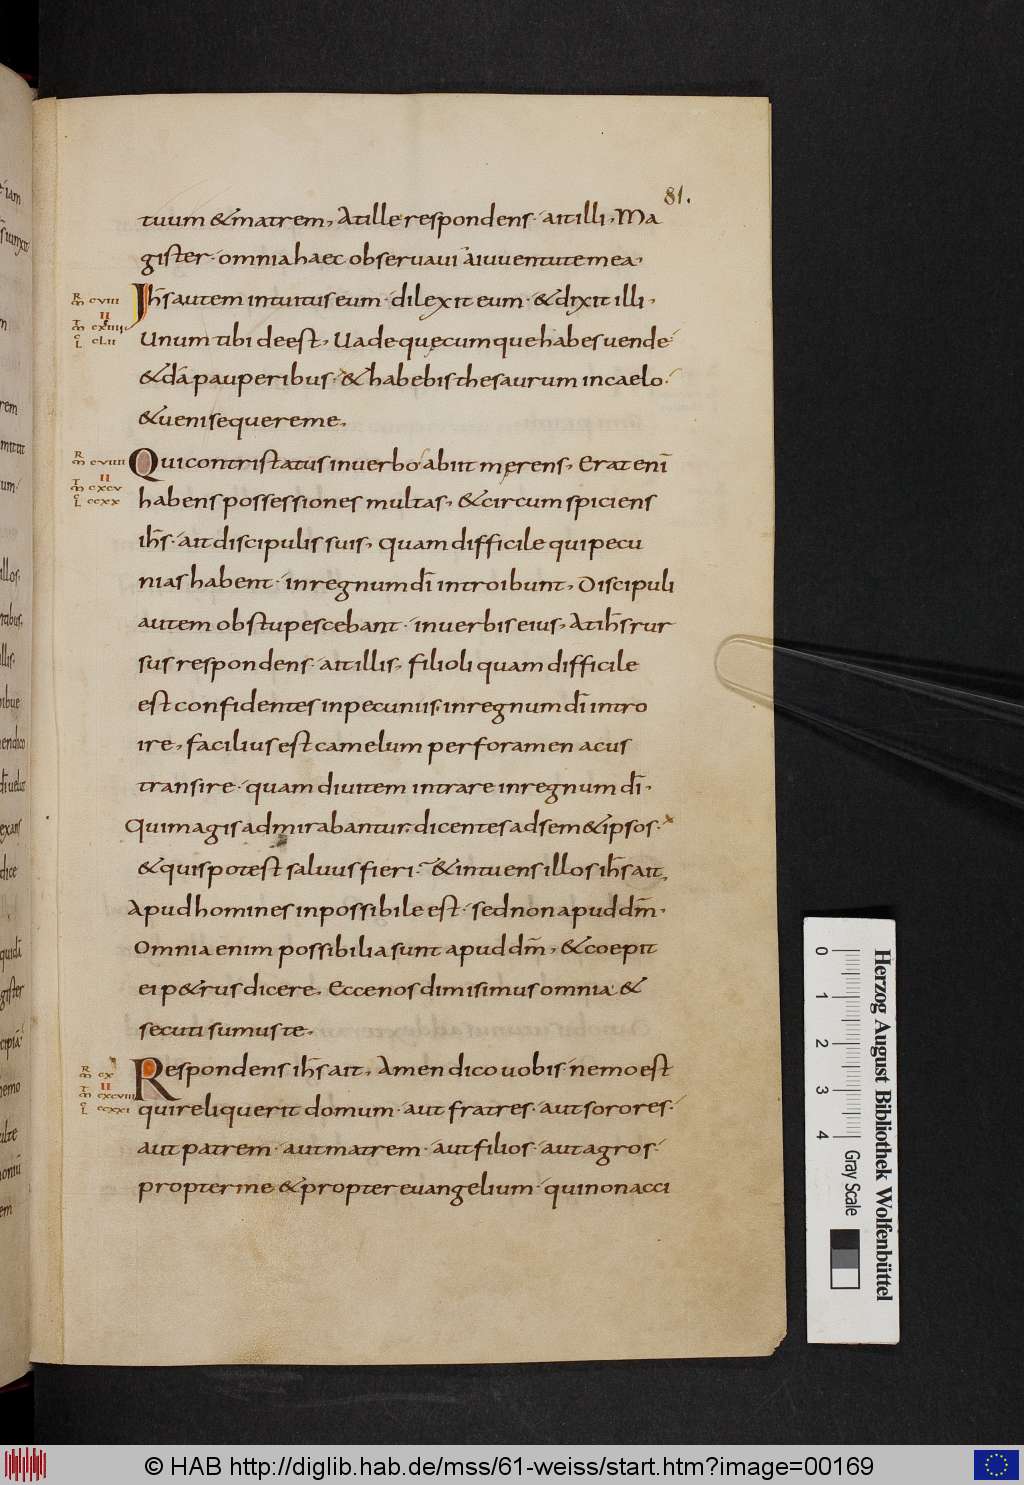 81.
tuum & matrem, At ille respondens · ait illi, Ma
gister · omnia haec observaui a iuventute mea,
Ihs̄ autem intuitus eum · dilexit eum · & dixit illi,
Unum tibi deest, Uade quęcumque habes uende
& dá pauperibus · & habebis thesaurum in caelo ·
& ueni sequere me.
Qui contristatus in verbo abiit męrens, Erat enī
habens possessiones multas, & circumspiciens
ihs̄ · ait discipulis suis, Quam difficile qui pecu
nias habent · in regnum dī introibunt, Discipuli
autem obstupescebant · in verbis eius, At ihs̄ rur
sus respondens · ait illis, filioli quam difficile
est confidentes in pecuniis · in regnum dī intro
ire, facilius est camelum per foramen acus
transire · quam diuitem intrare in regnum dī,
Qui magis admirabantur · dicentes ad sem&ipsos ·
& quis potest saluus fieri · & intuens illos ihs̄ ait,
Apud homines inpossibile est · sed non apud dm̄ ·
Omnia enim possibilia sunt apud dm̄, & coepit
ei p&rus dicere, Ecce nos dimisimus omnia &
secuti sumus te.
Respondens ihs̄ ait, Amen dico uobis · nemo est
qui reliquerit domum · aut fratres · aut sorores ·
aut patrem · aut matrem · aut filios · aut agros ·
propter me & propter euangelium · qui non acci
R m̄ CVIII
II
T m̄ CXIIII
C L CLII
R m̄ CVIIII
II
T m̄ CXCV
C L CCXX
R m̄ CX
II
T m̄ CXCVIII
C L CCXXI
0 1 2 3 4
Gray Scale
Herzog August Bibliothek Wolfenbüttel
© HAB http://diglib.hab.de/mss/61-weiss/start.htm?image=00169